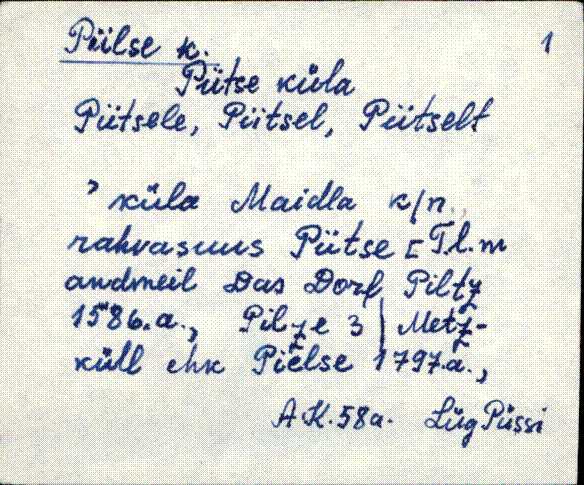 Püilse k. 1
Pütse küla
Pütsele, Pütsel, Pütselt
küla Maidla k/n.
rahvasuus Pütse [T.l.m
andmeil Das Dorf Piltz
1586.a., Pilze 3 | Metz-
küll ehk Pielse 1797.a.,
A.K.58a. Lüg Püssi